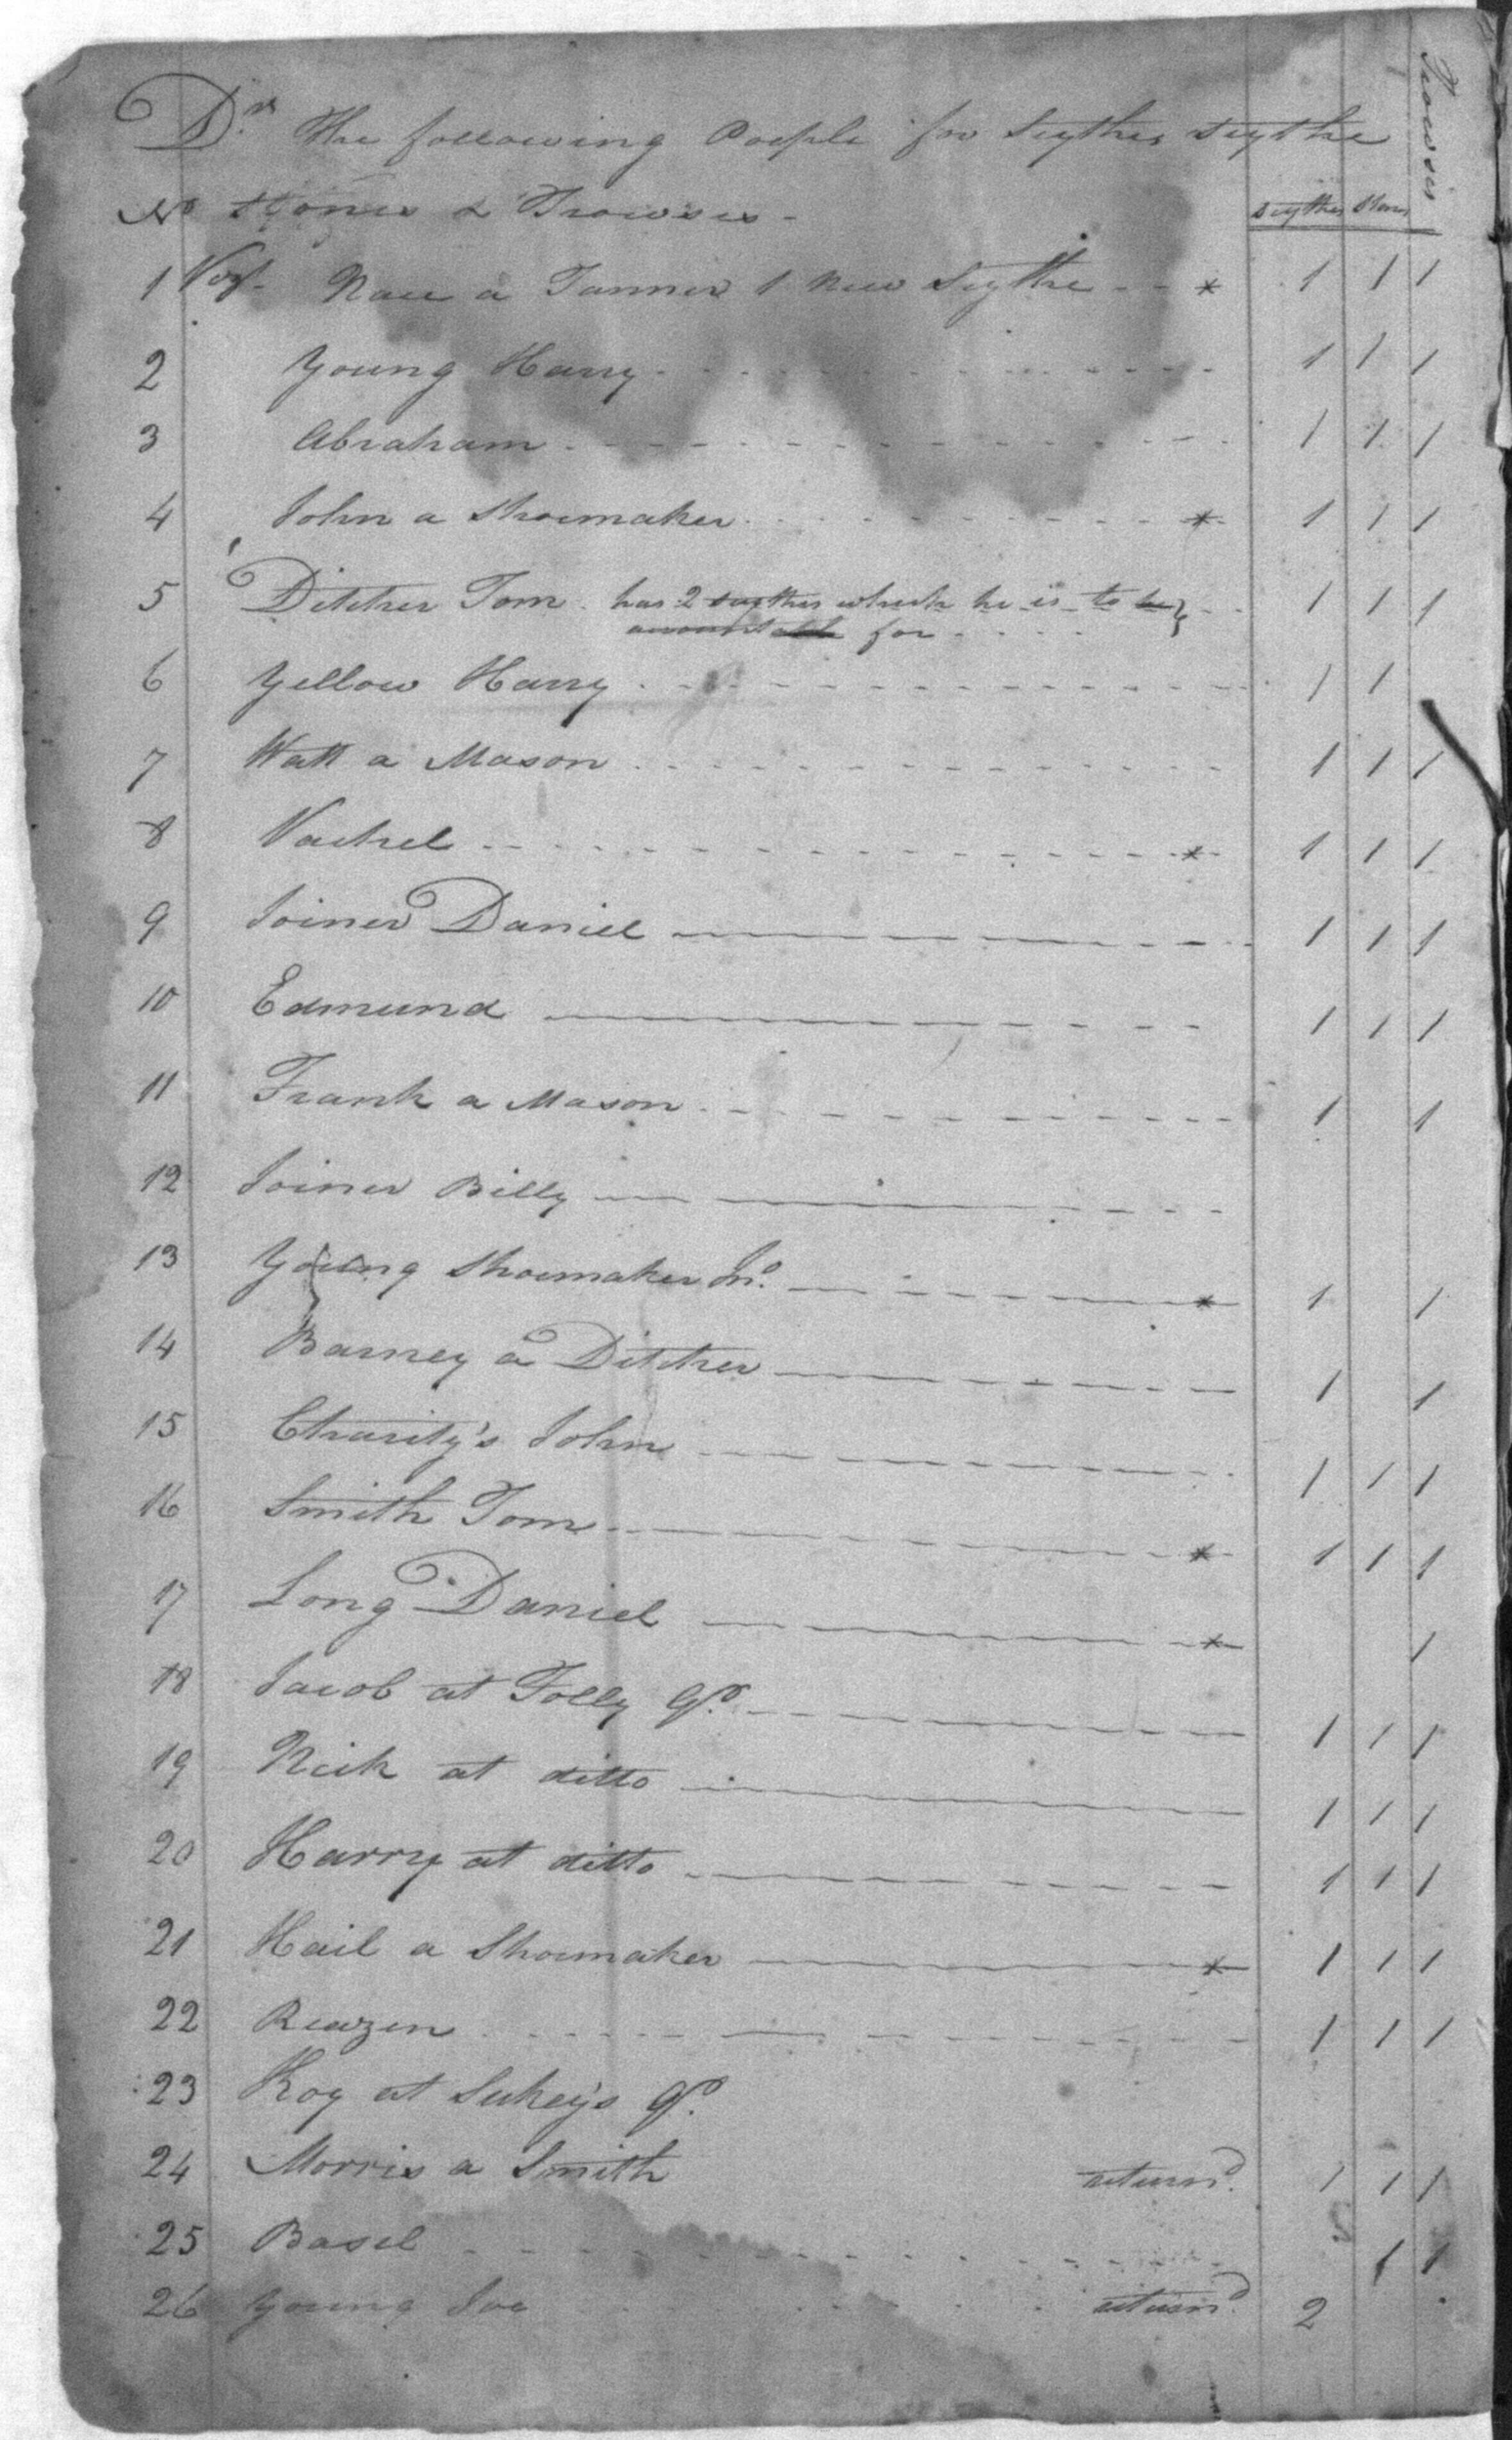 Dr. The following People for Scythes Scythe
No Stones & Trowses -
Trowses
Scythes Stones
1 Vizt. Nace a Tanner 1 New Scythe - - * 1 1 1
2 Young Harry 1 1 1
3 Abraham 1 1 1
4 John a Shoemaker * 1 1 1
5 Ditcher Tom has 2 Scythes which he is to be } 1 1 1
accountable for
6 Yellow Harry 1 1
7 Watt a Mason 1 1 1
8 Vachel * 1 1 1
9 Joiner Daniel 1 1 1
10 Edmund 1 1 1
11 Frank a Mason 1 1
12 Joiner Billy
13 Young Shoemaker Jno. * 1 1
14 Barney a Ditcher 1 1
15 Charity's John 1 1 1
16 Smith Tom * 1 1 1
17 Long Daniel * 1
18 Jacob at Folly Qr. 1 1 1
19 Nick at ditto 1 1 1
20 Harry at ditto 1 1 1
21 Hail a Shoemaker * 1 1 1
22 Reazen 1 1 1
23 Roy at Sukey's Qr.
24 Morris a Smith returnd. 1 1 1
25 Basil 1 1
26 Young Joe returnd. 2